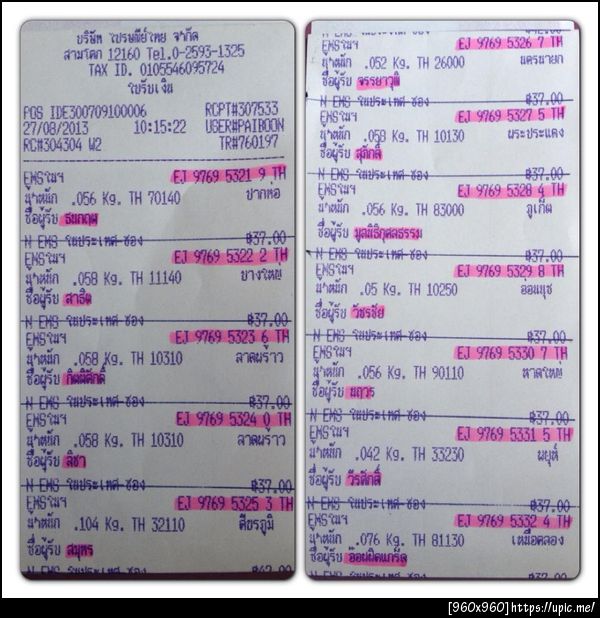 บริษัท ไปรษณีย์ไทย จำกัด
สามโคก 12160 Tel.0-2593-1325
TAX ID. 0105546095724
ใบรับเงิน
POS IDE300709100006 RCPT#307533
27/08/2013 10:15:22 USER#PAIBOON
RC#304304 W2 TR#760197
EMSในฯ EJ 9769 5321 9 TH
น้ำหนัก .056 Kg. TH 70140 ปากท่อ
ชื่อผู้รับ ธนกฤต
N EMS ในประเทศ ซอง ฿37.00
EMSในฯ EJ 9769 5322 2 TH
น้ำหนัก .058 Kg. TH 11140 บางใหญ่
ชื่อผู้รับ สาธิต
N EMS ในประเทศ ซอง ฿37.00
EMSในฯ EJ 9769 5323 6 TH
น้ำหนัก .058 Kg. TH 10310 ลาดพร้าว
ชื่อผู้รับ กิตติศักดิ์
N EMS ในประเทศ ซอง ฿37.00
EMSในฯ EJ 9769 5324 0 TH
น้ำหนัก .058 Kg. TH 10310 ลาดพร้าว
ชื่อผู้รับ ลิชา
N EMS ในประเทศ ซอง ฿37.00
EMSในฯ EJ 9769 5325 3 TH
น้ำหนัก .104 Kg. TH 32110 ศีขรภูมิ
ชื่อผู้รับ สมุทร
N EMS ในประเทศ ซอง ฿42.00
฿42.00
EMSในฯ EJ 9769 5326 7 TH
น้ำหนัก .052 Kg. TH 26000 นครนายก
ชื่อผู้รับ จรรยาวุฒิ
N EMS ในประเทศ ซอง ฿37.00
EMSในฯ EJ 9769 5327 5 TH
น้ำหนัก .058 Kg. TH 10130 พระประแดง
ชื่อผู้รับ สุภักดิ์
N EMS ในประเทศ ซอง ฿37.00
EMSในฯ EJ 9769 5328 4 TH
น้ำหนัก .056 Kg. TH 83000 ภูเก็ต
ชื่อผู้รับ มูลนิธิกุศลธรรม
N EMS ในประเทศ ซอง ฿37.00
EMSในฯ EJ 9769 5329 8 TH
น้ำหนัก .05 Kg. TH 10250 อ่อนนุช
ชื่อผู้รับ วัชรชัย
N EMS ในประเทศ ซอง ฿37.00
EMSในฯ EJ 9769 5330 7 TH
น้ำหนัก .056 Kg. TH 90110 หาดใหญ่
ชื่อผู้รับ
N EMS ในประเทศ ซอง ฿37.00
EMSในฯ EJ 9769 5331 5 TH
น้ำหนัก .042 Kg. TH 33230 พยุห์
ชื่อผู้รับ วีรศักดิ์
N EMS ในประเทศ ซอง ฿37.00
EMSในฯ EJ 9769 5332 4 TH
น้ำหนัก .076 Kg. TH 81130 เหนือคลอง
ชื่อผู้รับ
N EMS ในประเทศ ซอง ฿37.00
[960x960]https://upic.me/